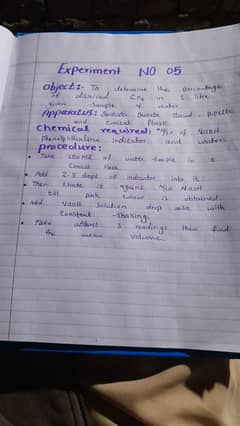 Experiment NO 05
Object:- To determine the percentage
of dissolved Co2 in 1 litre
given sample of water.
Apparatus: Burette stand, pipette
and Conical flask.
Chemical required: N/10 of NaoH
phenolphthaline indicator and water.
procedure:-
Take of water sample in a
Conical flask.
Add 2-3 drops of indicator into it.
Then titrate it against N/10 NaoH
till pink colour is obtained.
Add NaoH Solution drop wise with
Constant shaking.
Take atleast 3 readings then find
the volume.